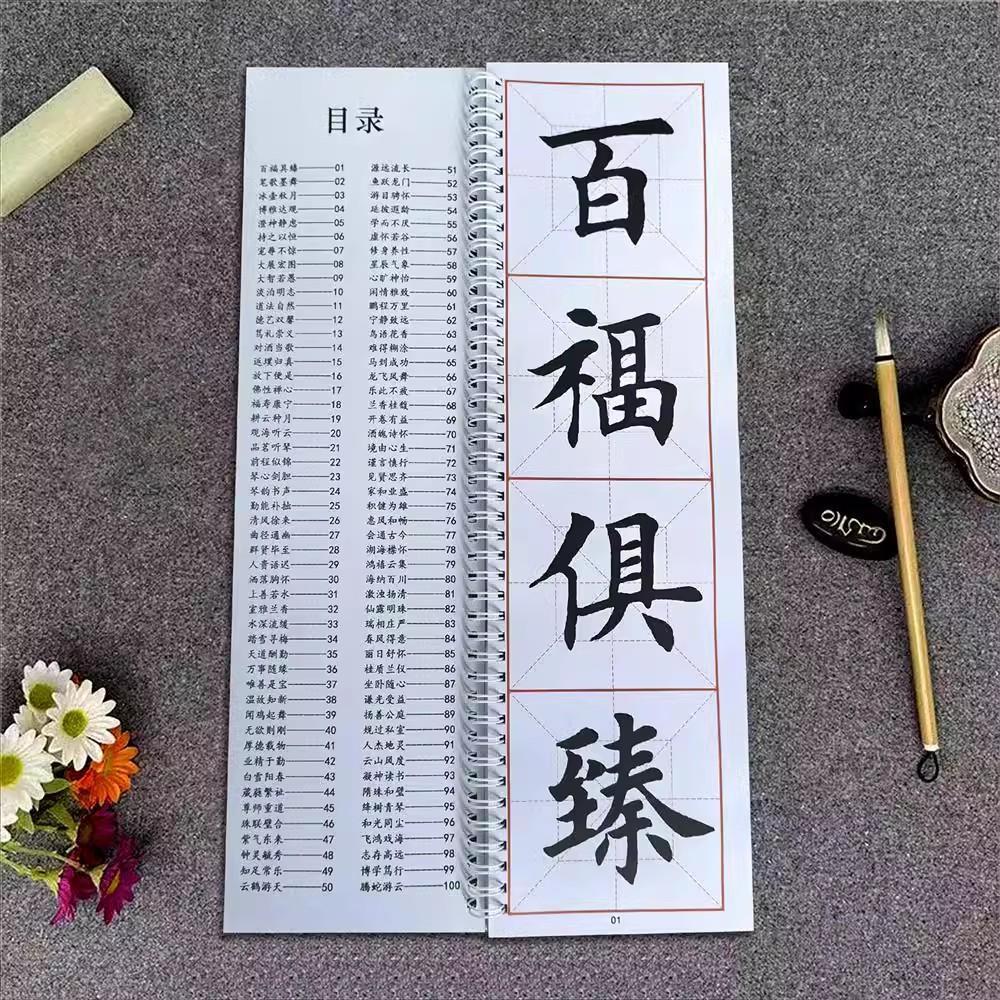 目录
百福具臻 01
笔歌墨舞 02
冰壶秋月 03
博雅达观 04
澄神静虑 05
持之以恒 06
宠辱不惊 07
大展宏图 08
大智若愚 09
淡泊明志 10
道法自然 11
德艺双馨 12
笃礼崇义 13
对酒当歌 14
返璞归真 15
放下便是 16
佛性禅心 17
福寿康宁 18
耕云种月 19
观海听云 20
品茗听琴 21
前程似锦 22
琴心剑胆 23
琴韵书声 24
勤能补拙 25
清风徐来 26
曲径通幽 27
群贤毕至 28
人贵语迟 29
洒落胸怀 30
上善若水 31
室雅兰香 32
水深流缓 33
踏雪寻梅 34
天道酬勤 35
万事随缘 36
唯善是宝 37
温故知新 38
闻鸡起舞 39
无欲则刚 40
厚德载物 41
业精于勤 42
白雪阳春 43
葳蕤繁祉 44
尊师重道 45
珠联璧合 46
紫气东来 47
钟灵毓秀 48
知足常乐 49
云鹤游天 50
源远流长 51
鱼跃龙门 52
游目骋怀 53
延披遐龄 54
学而不厌 55
虚怀若谷 56
修身养性 57
星辰气象 58
心旷神怡 59
闲情雅致 60
鹏程万里 61
宁静致远 62
鸟语花香 63
难得糊涂 64
马到成功 65
龙飞凤舞 66
乐此不疲 67
兰香桂馥 68
开卷有益 69
酒魄诗怀 70
境由心生 71
谨言慎行 72
见贤思齐 73
家和业盛 74
积健为雄 75
惠风和畅 76
会通古今 77
湖海襟怀 78
鸿禧云集 79
海纳百川 80
激浊扬清 81
仙露明珠 82
瑞相庄严 83
春风得意 84
丽日舒怀 85
桂质兰仪 86
坐卧随心 87
谦光受益 88
扬善公庭 89
规过私室 90
人杰地灵 91
云山风度 92
凝神读书 93
隋珠和璧 94
绛树青琴 95
和光同尘 96
飞鸿戏海 97
志存高远 98
博学笃行 99
腾蛇游云 100
百
福
俱
臻
01